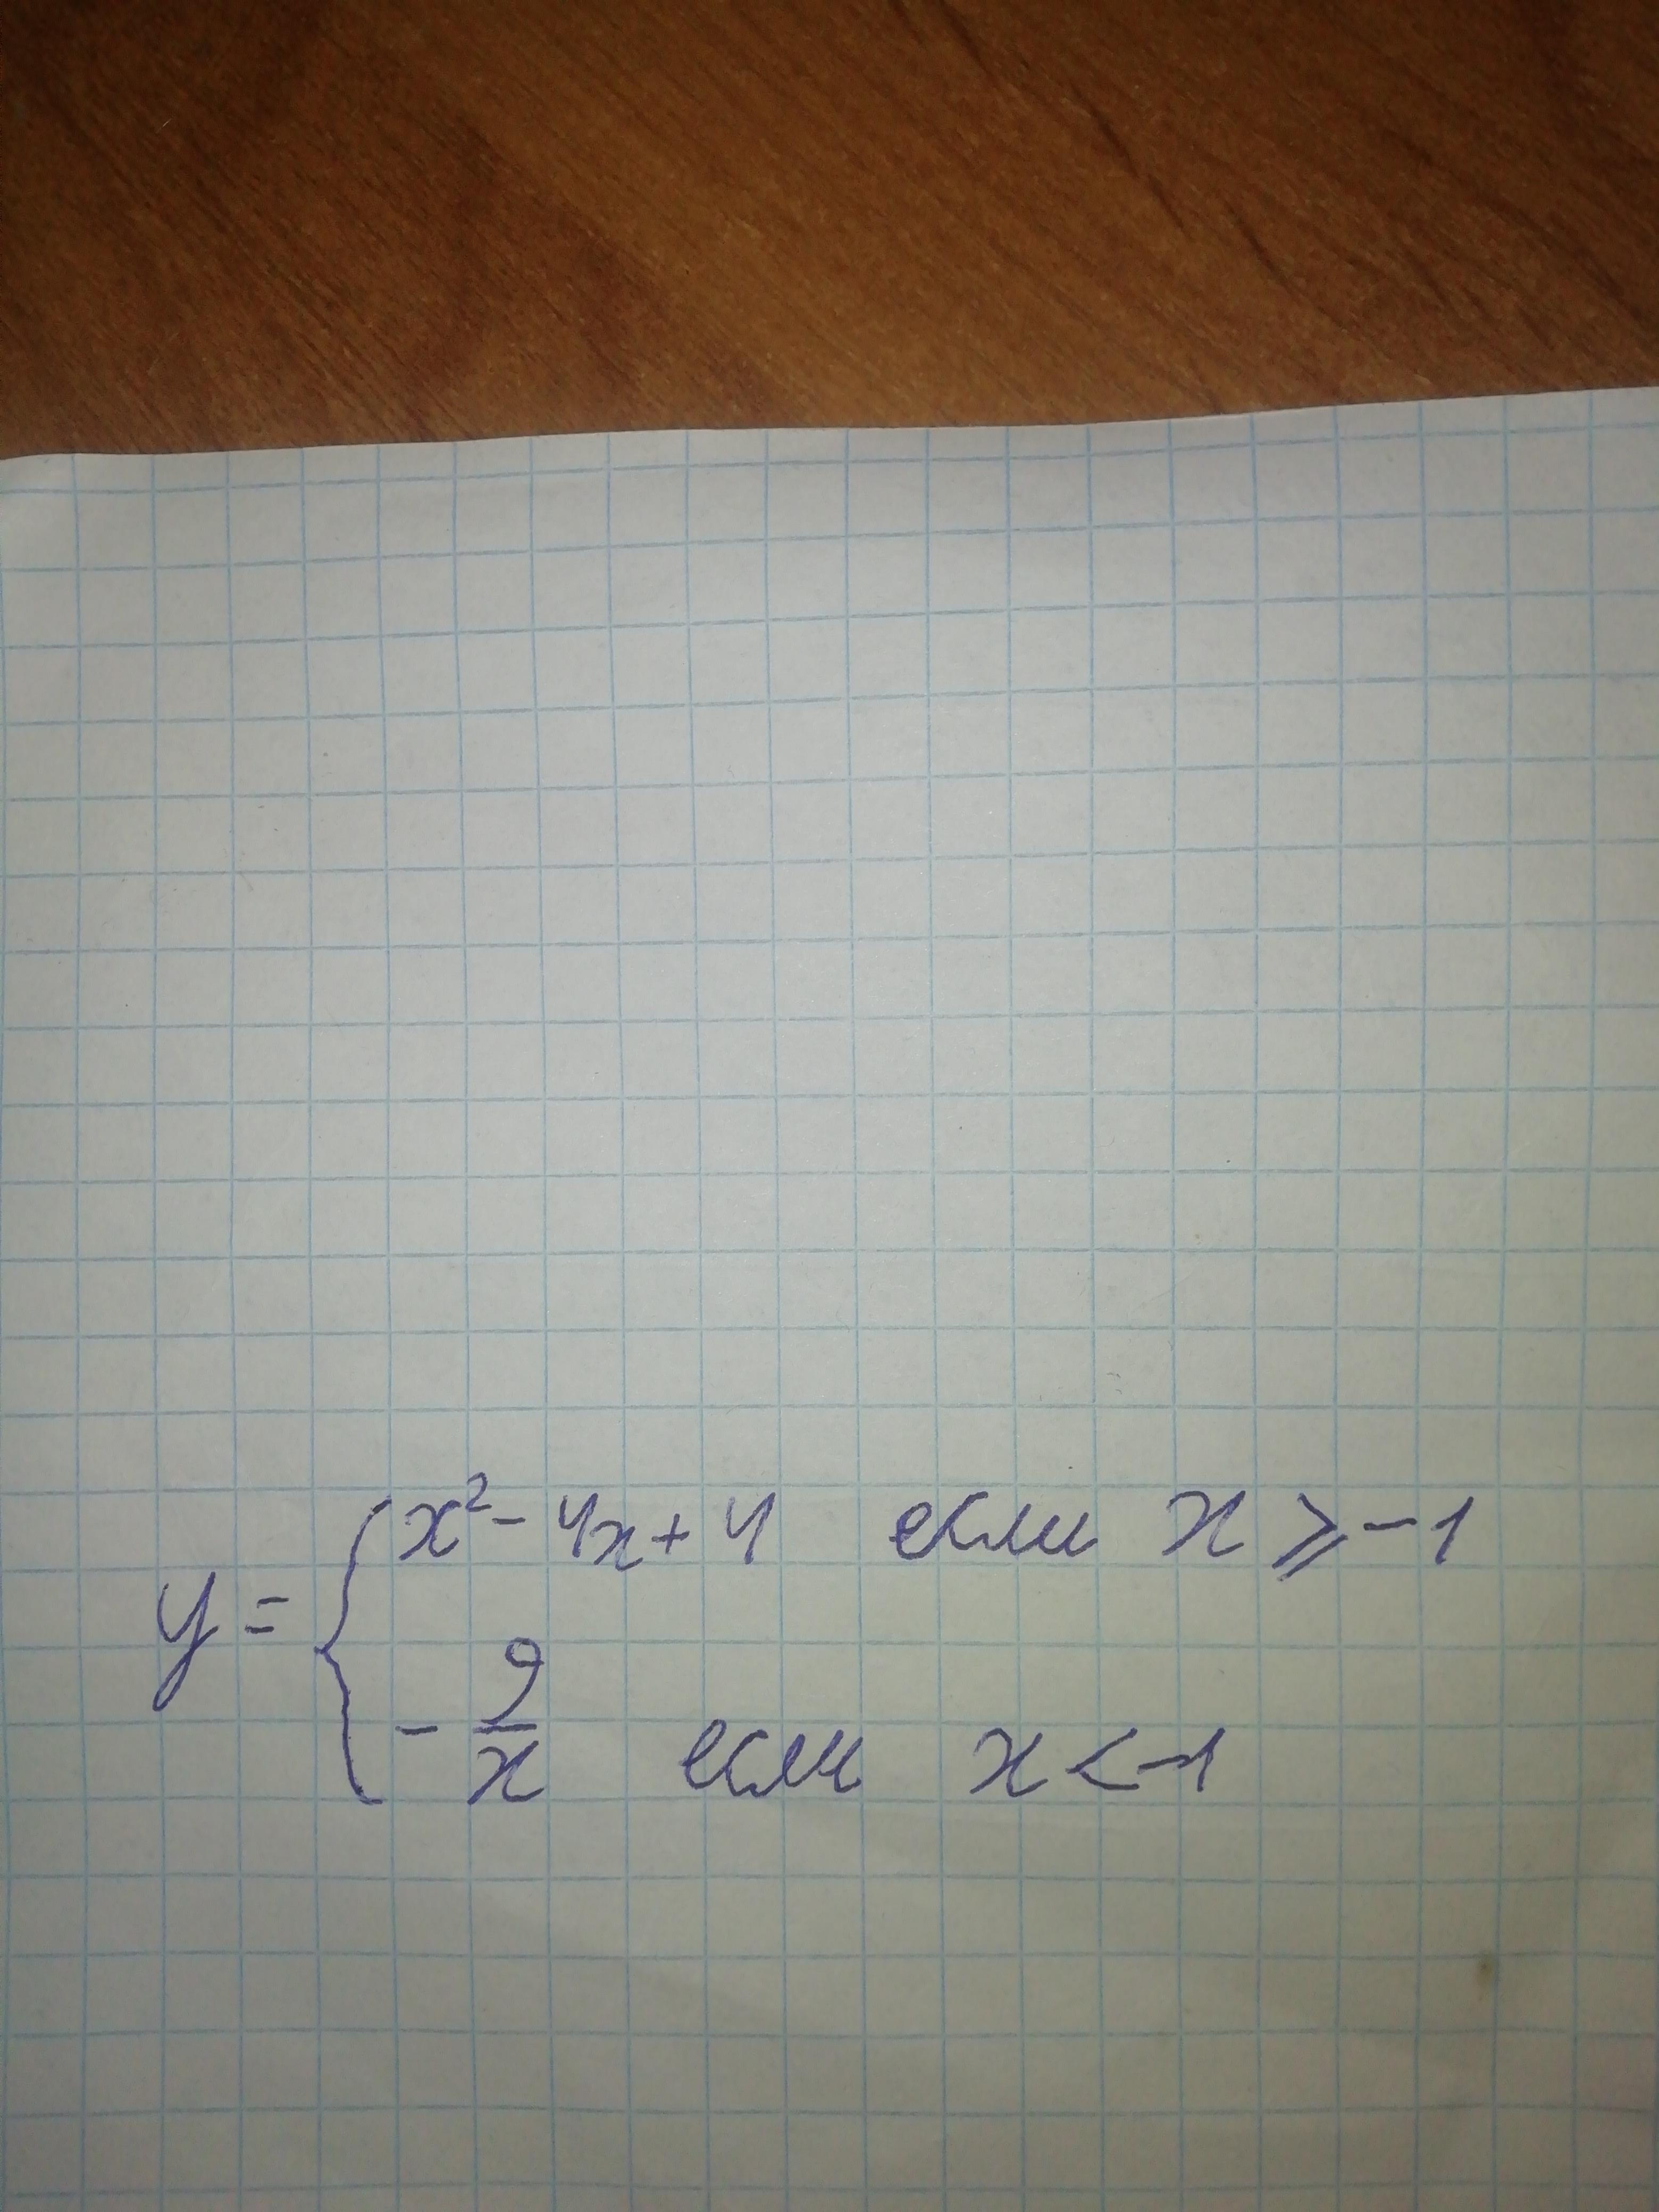 y = { x² - 4x + 4 если x ⩾ -1
- 9/x если x < -1